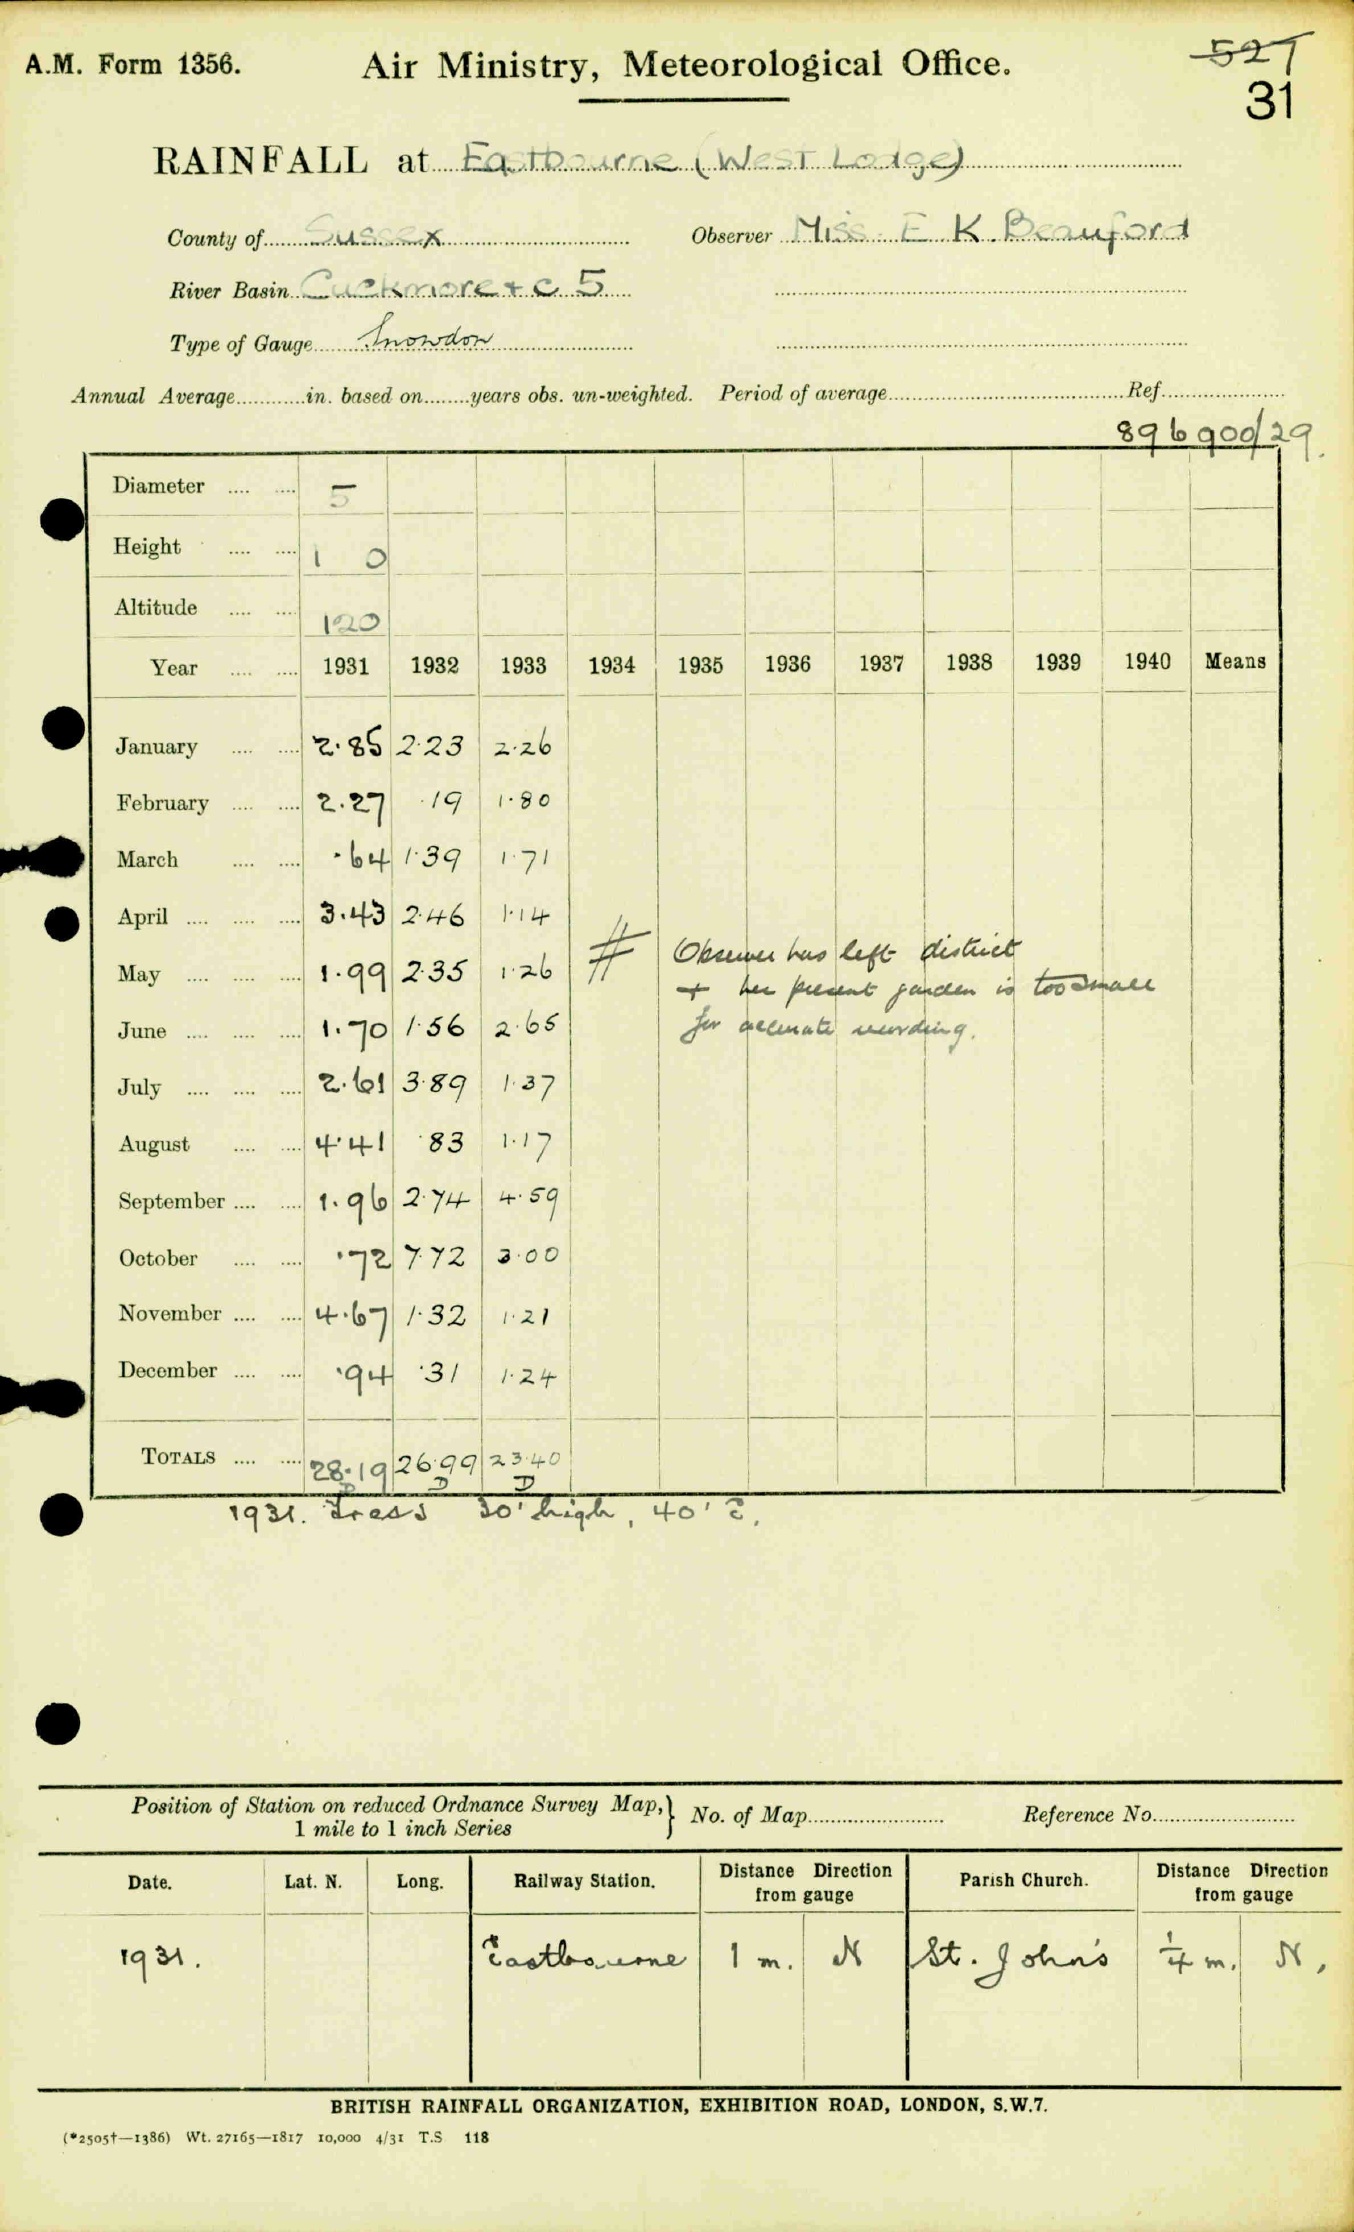 A.M. Form 1356.
Air Ministry, Meteorological Office.
527
31
RAINFALL at Eastbourne (West Lodge)
County of Sussex Observer Miss E K Beauford
River Basin Cuckmore + c 5
Type of Gauge Snowdon
Annual Average in. based on years obs. un-weighted. Period of average Ref
896900/29.
Diameter 5
Height 1 0
Altitude 120
Year 1931 1932 1933 1934 1935 1936 1937 1938 1939 1940 Means
January 2.85 2.23 2.26
February 2.27 .19 1.80
March .64 1.39 1.71
April 3.43 2.46 1.14
May 1.99 2.35 1.26
June 1.70 1.56 2.65
July 2.61 3.89 1.37
August 4.41 .83 1.17
September 1.96 2.74 4.59
October .72 7.72 3.00
November 4.67 1.32 1.21
December .94 .31 1.24
# Observer has left district
+ her present garden is too small
for accurate recording.
TOTALS 28.19 26.99 23.40
D D D
1931. Trees 30' high, 40' E.
Position of Station on reduced Ordnance Survey Map,
1 mile to 1 inch Series
} No. of Map Reference No.
Date. Lat. N. Long. Railway Station. Distance Direction from gauge Parish Church. Distance Direction from gauge
1931. Eastbourne 1 m. N St. John's 1/4 m. N.
BRITISH RAINFALL ORGANIZATION, EXHIBITION ROAD, LONDON, S.W.7.
(*2505†—1386) Wt. 27165—1817 10,000 4/31 T.S 118